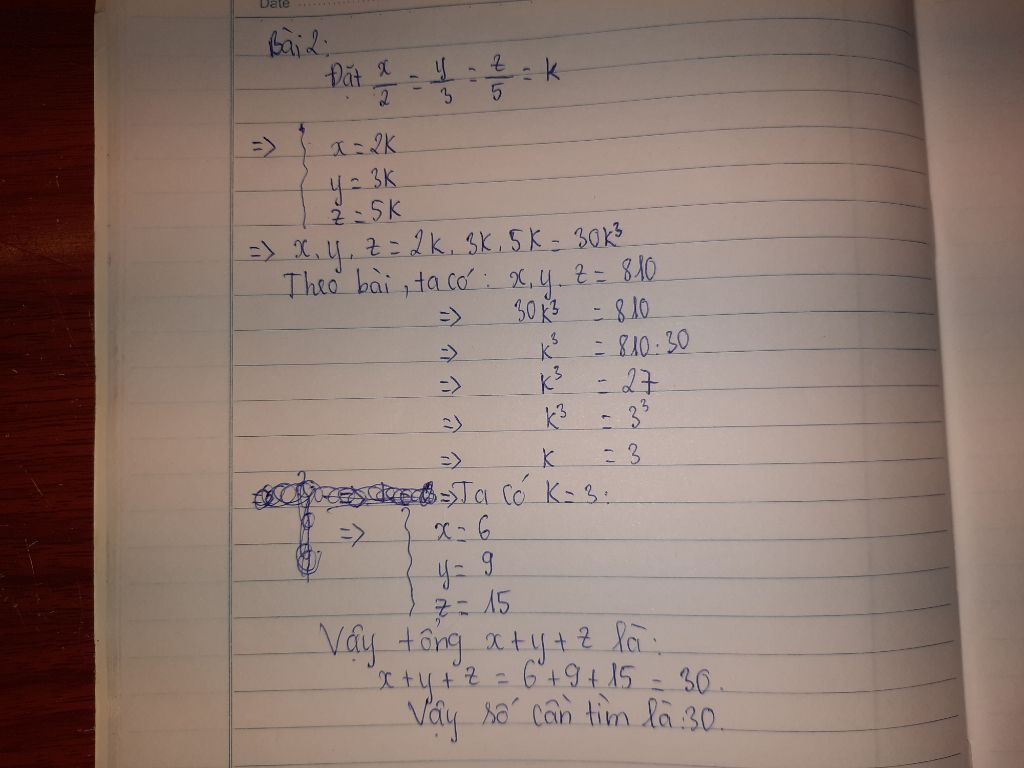 Date
Bài 2:
Đặt x/2 = y/3 = z/5 = k
=> { x = 2k
y = 3k
z = 5k
=> x. y. z = 2k. 3k. 5k = 30k³
Theo bài, ta có: x. y. z = 810
=> 30k³ = 810
=> k³ = 810:30
=> k³ = 27
=> k³ = 3³
=> k = 3
=> Ta có k = 3:
=> { x = 6
y = 9
z = 15
Vậy tổng x+y+z là:
x+y+z = 6+9+15 = 30.
Vậy số cần tìm là:30.